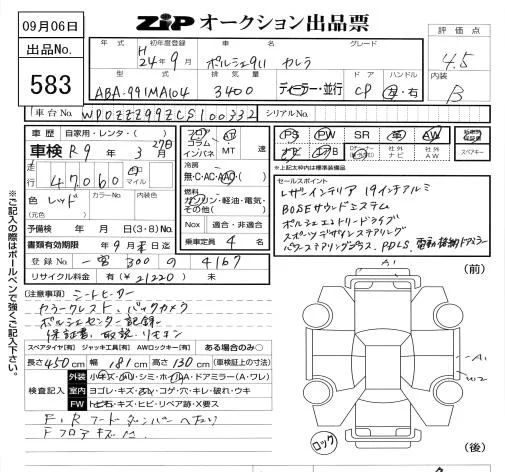 09月06日
出品No.
583
ZIP オークション出品票
評価点
4.5
内装
B
年式 初年度登録 車名 グレード
H 24年9月 ポルシェ911 カレラ
型式 排気量 ドア ハンドル
ABA-991MA104 3400 ディーラー・並行 CP 左・右
車台No. WP0ZZZ99ZCS100332 シリアルNo.
車歴 自家用・レンタ・( )
車検 R9年3月27日
走行 47060 km マイル
色 レッド カラーNo. 内装色
(元色)
予備検 年 月 日(3・6・8)No.
書類有効期限 9月末日迄
登録No. 一宮 300 の 4167
リサイクル料金 有(¥21220) 未
フロア コラム インパネ AT MT 速
冷房
無・C・AC・AAC( )
燃料
ガソリン・軽油・電気・その他( )
Nox 適合・非適合
乗車定員 4 名
PS PW SR 革 AW
ナビ TV エアB 社外ナビ 社外AW
スペアキー
*上記太枠内は標準装備
セールスポイント
レザーインテリア 19インチアルミ
BOSEサウンドシステム
ポルシェエントリードライブ
スポーツデザインステアリング
パワーステアリングプラス、PDLS、電動格納ドアミラー
[注意事項] シートヒーター
カラークレスト、バックカメラ
ポルシェセンター記録簿
保証書、取説、リモコン
スペアタイヤ[有] ジャッキ工具[有] AWロックキー[有] ある場合のみ○
長さ 450 cm 幅 181 cm 高さ 130 cm (車検証上の寸法)
検査記入
外装 小キズ・小凹・シミ・ホイールA・ドアミラー(A・ワレ)
室内 ヨゴレ・キズ・スレ・コゲ・穴・キレ・破れ・ウキ
FW トビ石・キズ・ヒビ・リペア跡・X要ス
F、Rフードダンパーヘタリ
Fフロアキズ凹
※ご記入の際はボールペンで強くご記入下さい。
(前)
A1
A1
ロック
(後)